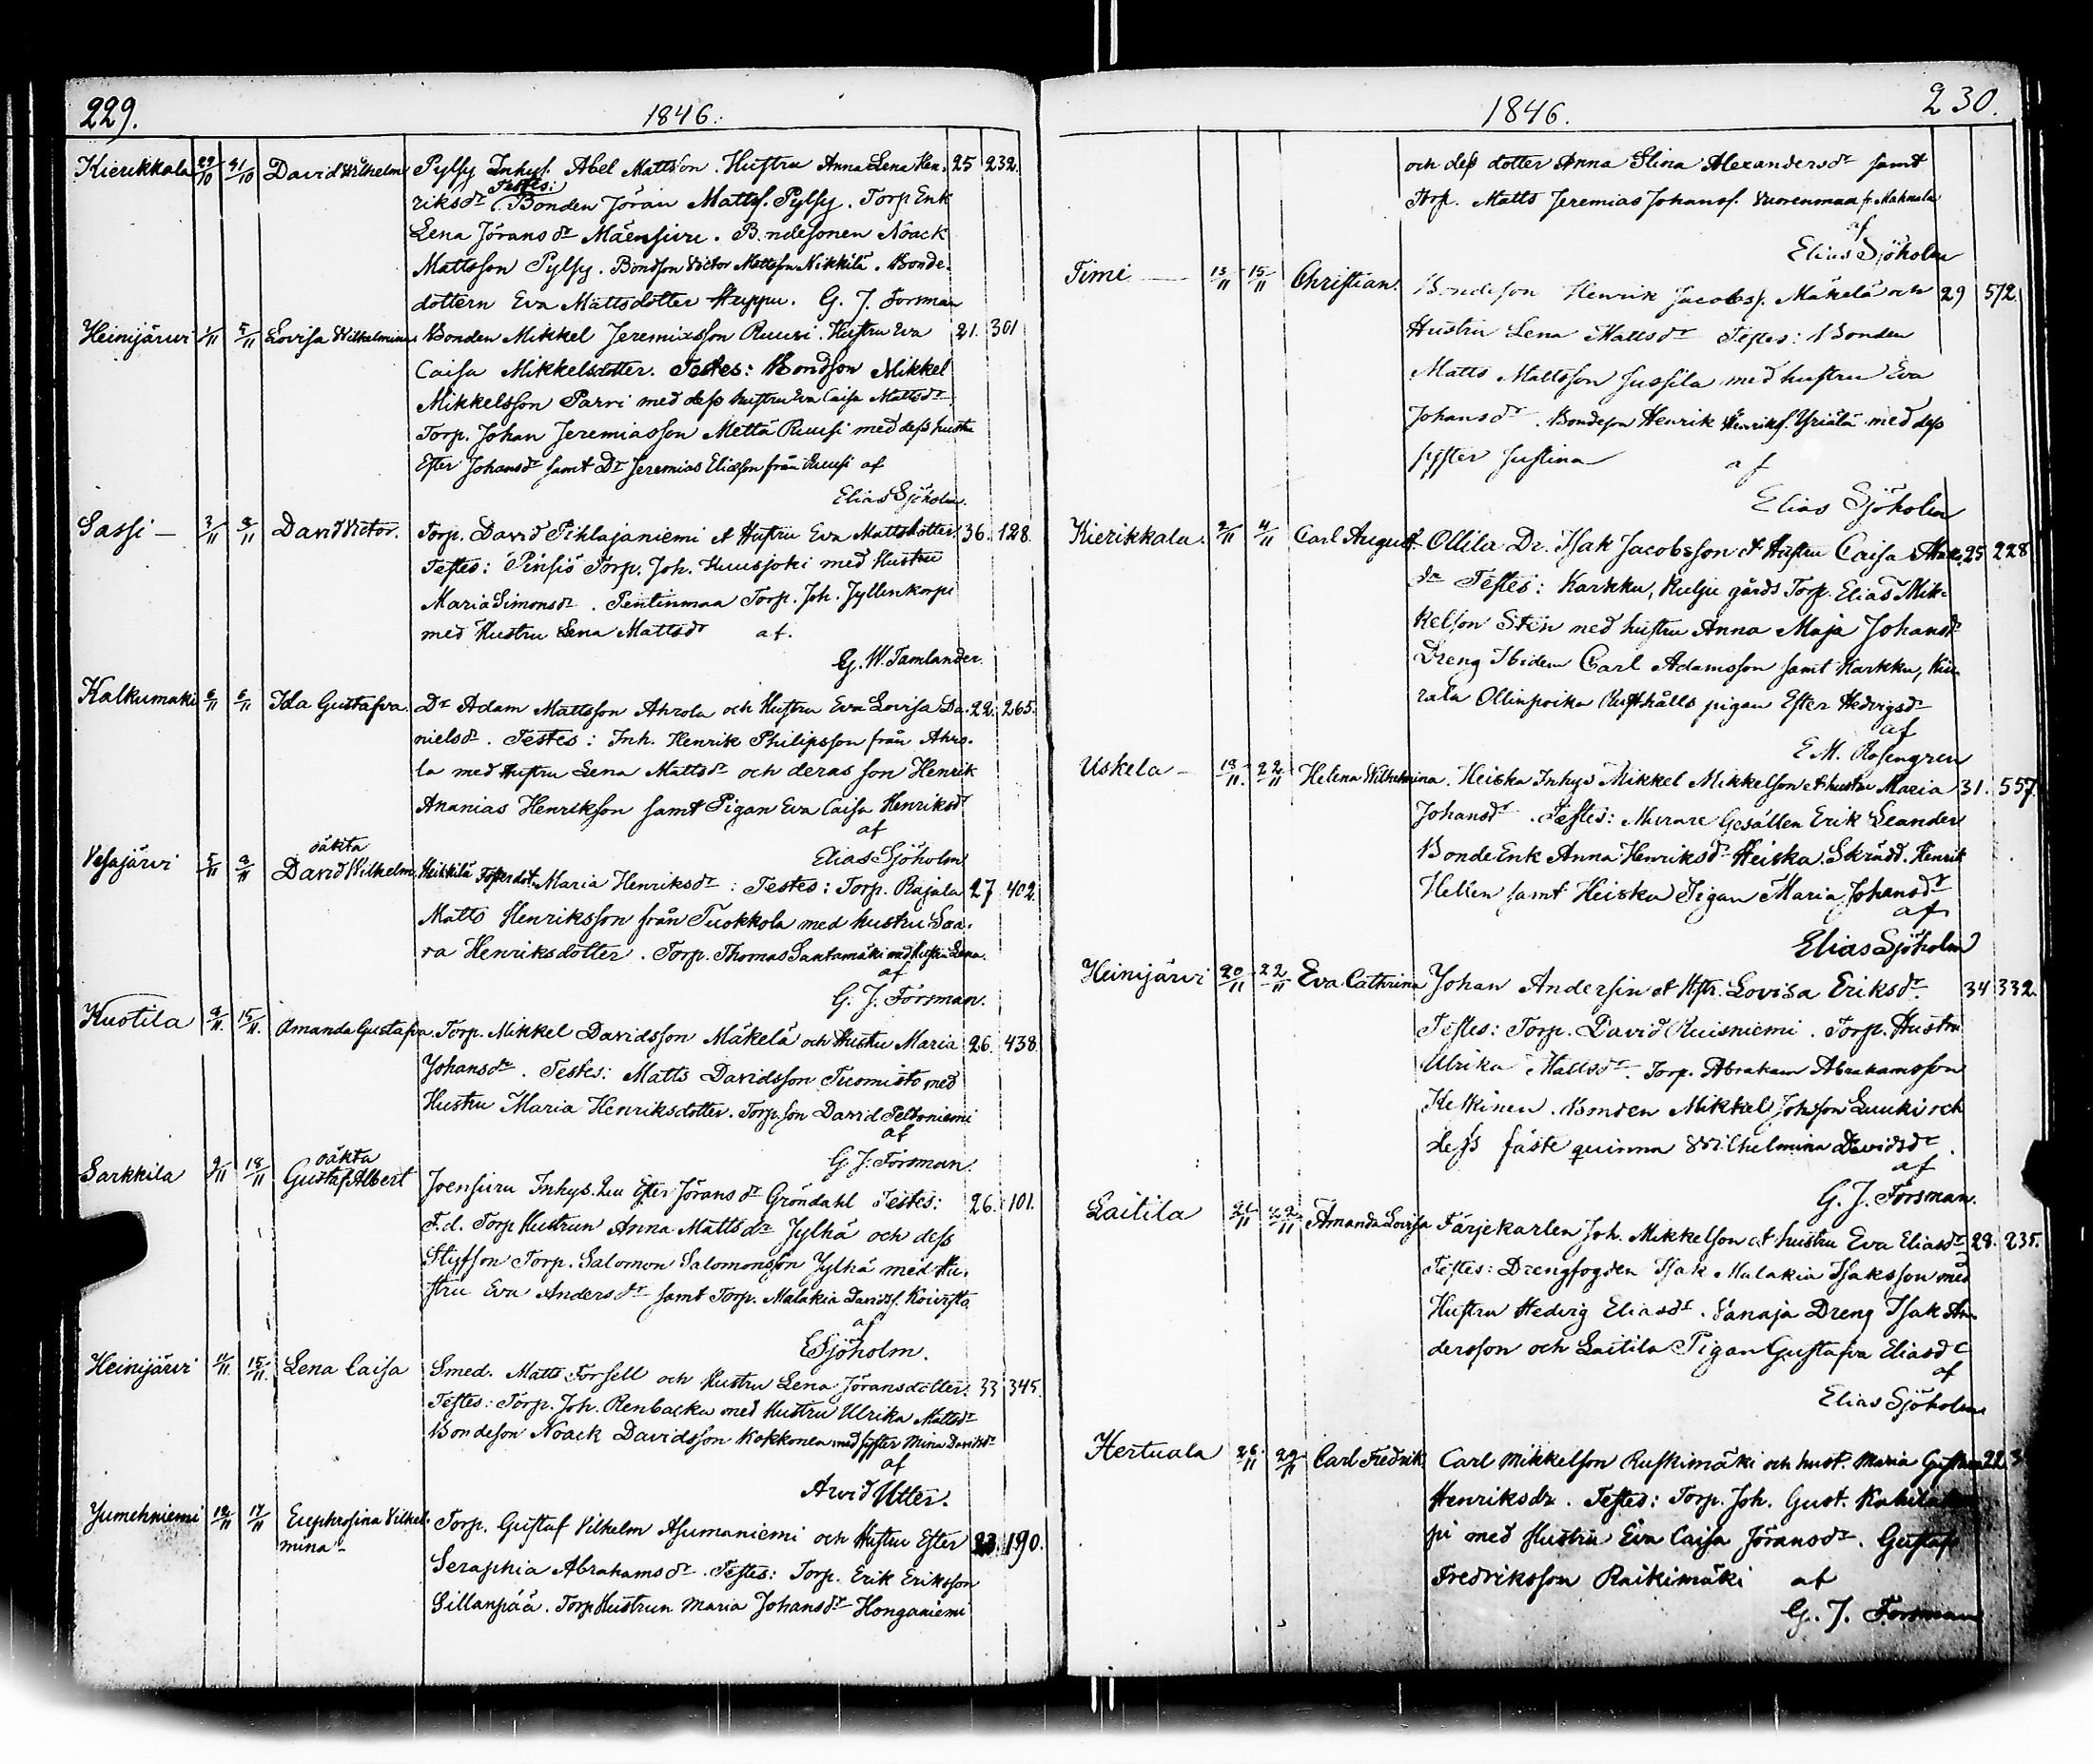 229.
1846.
Kierikkala 29/10 31/10 David Wilhelm Pylsy Inhys. Abel Mattsson. Hustru Anna Lena Hen- 25 232.
Testes:
riksdr. Bonden Jöran Mattss. Pylsy. Torp Enk
Lena Jöransdr Mäensivu. B.ndesonen Noack
Mattsson Pylsy. Bondson Victor Mattsson Nikkilä. Bonde-
dottern Eva Mattsdotter Huppu. G. J. Forsman
Heinijärvi 1/11 5/11 Lovisa Wilhelmina Bonden Mikkel Jeremiasson Ruusi. Hustru Eva 21. 301
Caisa Mikkelsdotter. Testes: Bondson Mikkel
Mikkelsson Parri med dess hustru Eva Caisa Mattsdr
Torp. Johan Jeremiasson Mettä Ruusi med dess hustru
Ester Johansdr samt Dr Jeremias Eliasson från Ruusi af
Elias Sjöholm.
Sassi - 3/11 8/11 David Victor. Torp. David Pihlajaniemi et Hustru Eva Mattsdotter. 36. 128
Testes: Pinsiö Torp. Joh. Huusjoki med Hustru
Maria Simonsdr. Pentinmaa Torp. Joh. Jyllenkorpi
med Hustru Lena Mattsdr af.
G. W. Tamlander.
Kalkumaki 6/11 6/11 Ida Gustafva. Dr Adam Mattsson Ahrola och Hustru Eva Lovisa Da- 22. 265.
nielsdr. Testes: Inh. Henrik Philipsson från Ahro-
la med Hustru Lena Mattsdr och deras son Henrik
Ananias Henrikson samt Pigan Eva Caisa Henriksdr
af
Elias Sjöholm
oäkta
Vesajärvi 5/11 9/11 David Wilhelm Heikkilä Fosterdot. Maria Henriksdr: Testes: Torp. Rajala 27 402.
Matts Henriksson från Tuokkola med hustru Saa-
ra Henriksdotter. Torp. Thomas Santamäki med hustru Lena.
af
G. J. Forsman.
Kuotila 9/11 15/11. Amanda Gustafva. Torp. Mikkel Davidsson Mäkelä och Hustru Maria 26. 438.
Johansdr. Testes: Matts Davidsson Tuomisto med
Hustru Maria Henriksdotter. Torp. son David Peltoniemi
af
G. J. Forsman.
oäkta
Sarkkila 9/11 18/11 Gustaf Albert Joensuru Inhys. Ester Jöransdr Gröndahl Testes: 26. 101.
F.d. Torp Hustrun Anna Mattsdr Jylhä och dess
Styfson Torp. Salomon Salomonsson Jylhä med Hu-
stru Eva Andersdr samt Torp. Malakia Davidss. Koivisto
af
E Sjöholm.
Heinijärvi 11/11 15/11. Lena Caisa Smed. Matts Forsell och Hustru Lena Jöransdotter. 33 345.
Testes: Torp. Joh. Renbacka med Hustru Ulrika Mattsdr
Bondeson Noack Davidsson Kokkonen med syster Mina Davidsdr
af
Arvid Utter.
Jumehniemi 12/11 17/11 Euphrosina Vilhel- Torp. Gustaf Vilhelm Asumaniemi och Hustru Ester 23. 190.
mina-
Seraphia Abrahamsdr. Testes: Torp. Erik Eriksson
Sillanpää. Torp Hustrun Maria Johansdr Honganiemi
230.
1846.
och dess dotter Anna Stina Alexandersdr samt
Torp. Matts Jeremias Johanss. Vuorenmaa fr. Mahnala
af
Elias Sjöholm
Timi 13/11 15/11 Christian. Bondeson Henrik Jacobss. Mäkelä och 29 572.
Hustru Lena Mattsdr Testes: Bonden
Matts Mattsson Jussila med hustru Eva
Johansdr. Bondeson Henrik Henrikss. Yriälä med dess
syster Justina af
Elias Sjöholm
Kierikkala. 2/11 4/11 Carl August. Ollila Dr. Isak Jacobsson et Hustru Caisa Matts 25 228
dr Testes: Karkku, Kulju gårds Torp. Elias Mik-
kelson Sten med hustru Anna Maja Johansdr
Dreng Ibidem Carl Adamsson samt Karkku, Kiu-
rala Ollinpoika Rusthålls pigan Ester Hedvigsdr
af
E M. Rosengren
Uskela - 18/11. 22/11. Helena Wilhelmina. Heiska Inhys Mikkel Mikkelson et hustru Maria 31. 557.
Johansdr. Testes: Murare Gesällen Erik Leander
Bonde Enk Anna Henriksdr Heiska. Skrädd. Henrik
Hellen samt Heiska Pigan Maria Johansdr
af
Elias Sjöholm
Heinijärvi 20/11 22/11 Eva Cathrina Johan Andersin et Hstr. Lovisa Eriksdr. 34 332.
Testes: Torp. David Ruisniemi. Torp. Hustru
Ulrika Mattsdr. Torp. Abraham Abrahamsson
Keskinen. Bonden Mikkel Johsson Luuki och
dess fäste quinna Wilhelmina Davidsdr.
af
G. J. Forsman.
Laitila 21/11 22/11 Amanda Lovisa Färjekarlen Joh. Mikkelson et hustru Eva Eliasdr 28. 235.
Testes: Drengfogden Isak Malakia Isaksson med
Hustru Hedvig Eliasdr. Vanaja Dreng Isak An-
dersson och Laitila Pigan Gustafva Eliasdr
af
Elias Sjöholm
Hertuala 26/11 29/11 Carl Fredrik Carl Mikkelson Ruskimäki och hust. Maria 22 3
Henriksdr. Testes: Torp. Joh. Gust.
pi med Hustru Eva Caisa Jöransdr. Gustaf
Fredriksson Raikimäki af
G. J. Forsman